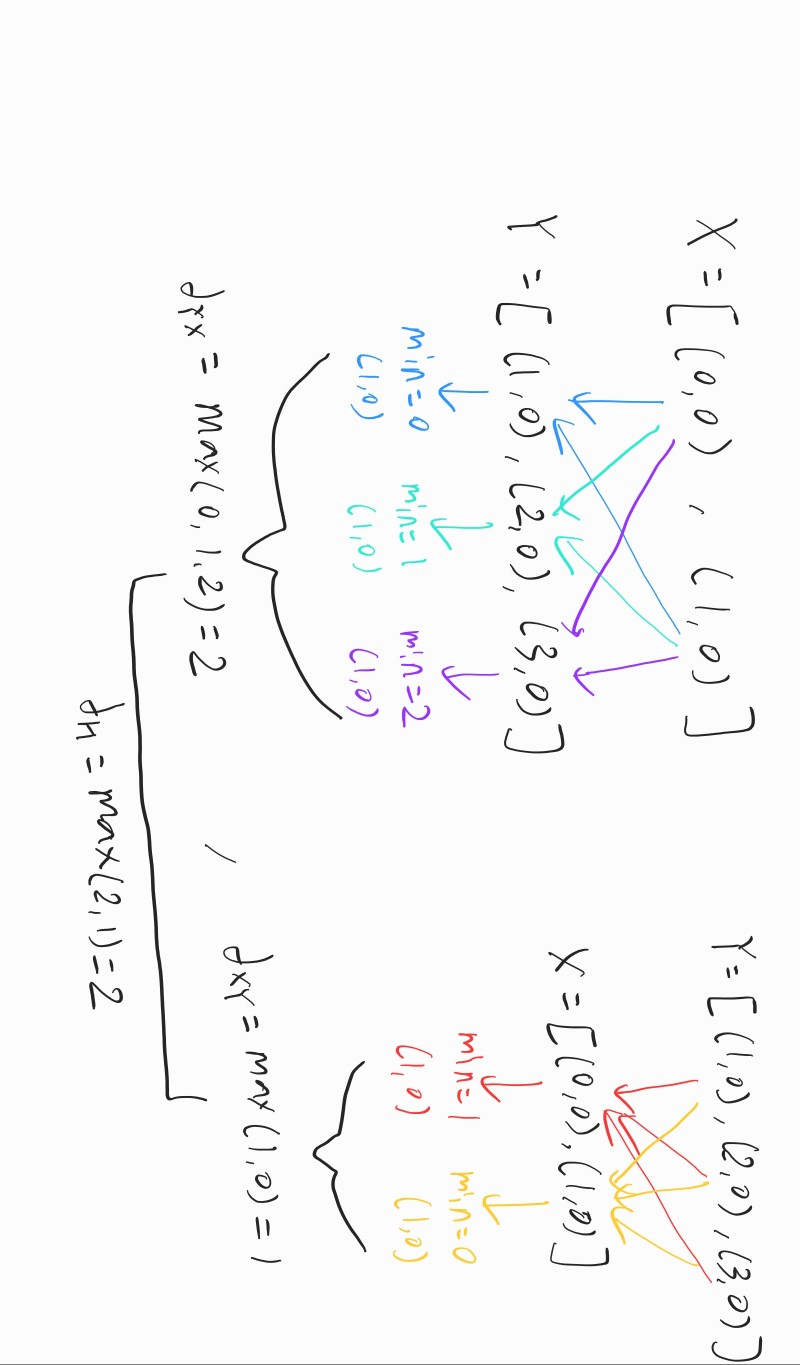 X = [(0,0) , (1,0)]
Y = [(1,0), (2,0), (3,0)]
min=0 min=1 min=2
(1,0) (1,0) (1,0)
dYX = max(0,1,2) = 2
,
Y = [(1,0), (2,0), (3,0)]
X = [(0,0), (1,0)]
min=1 min=0
(1,0) (1,0)
dXY = max(1,0) = 1
dH = max(2,1) = 2